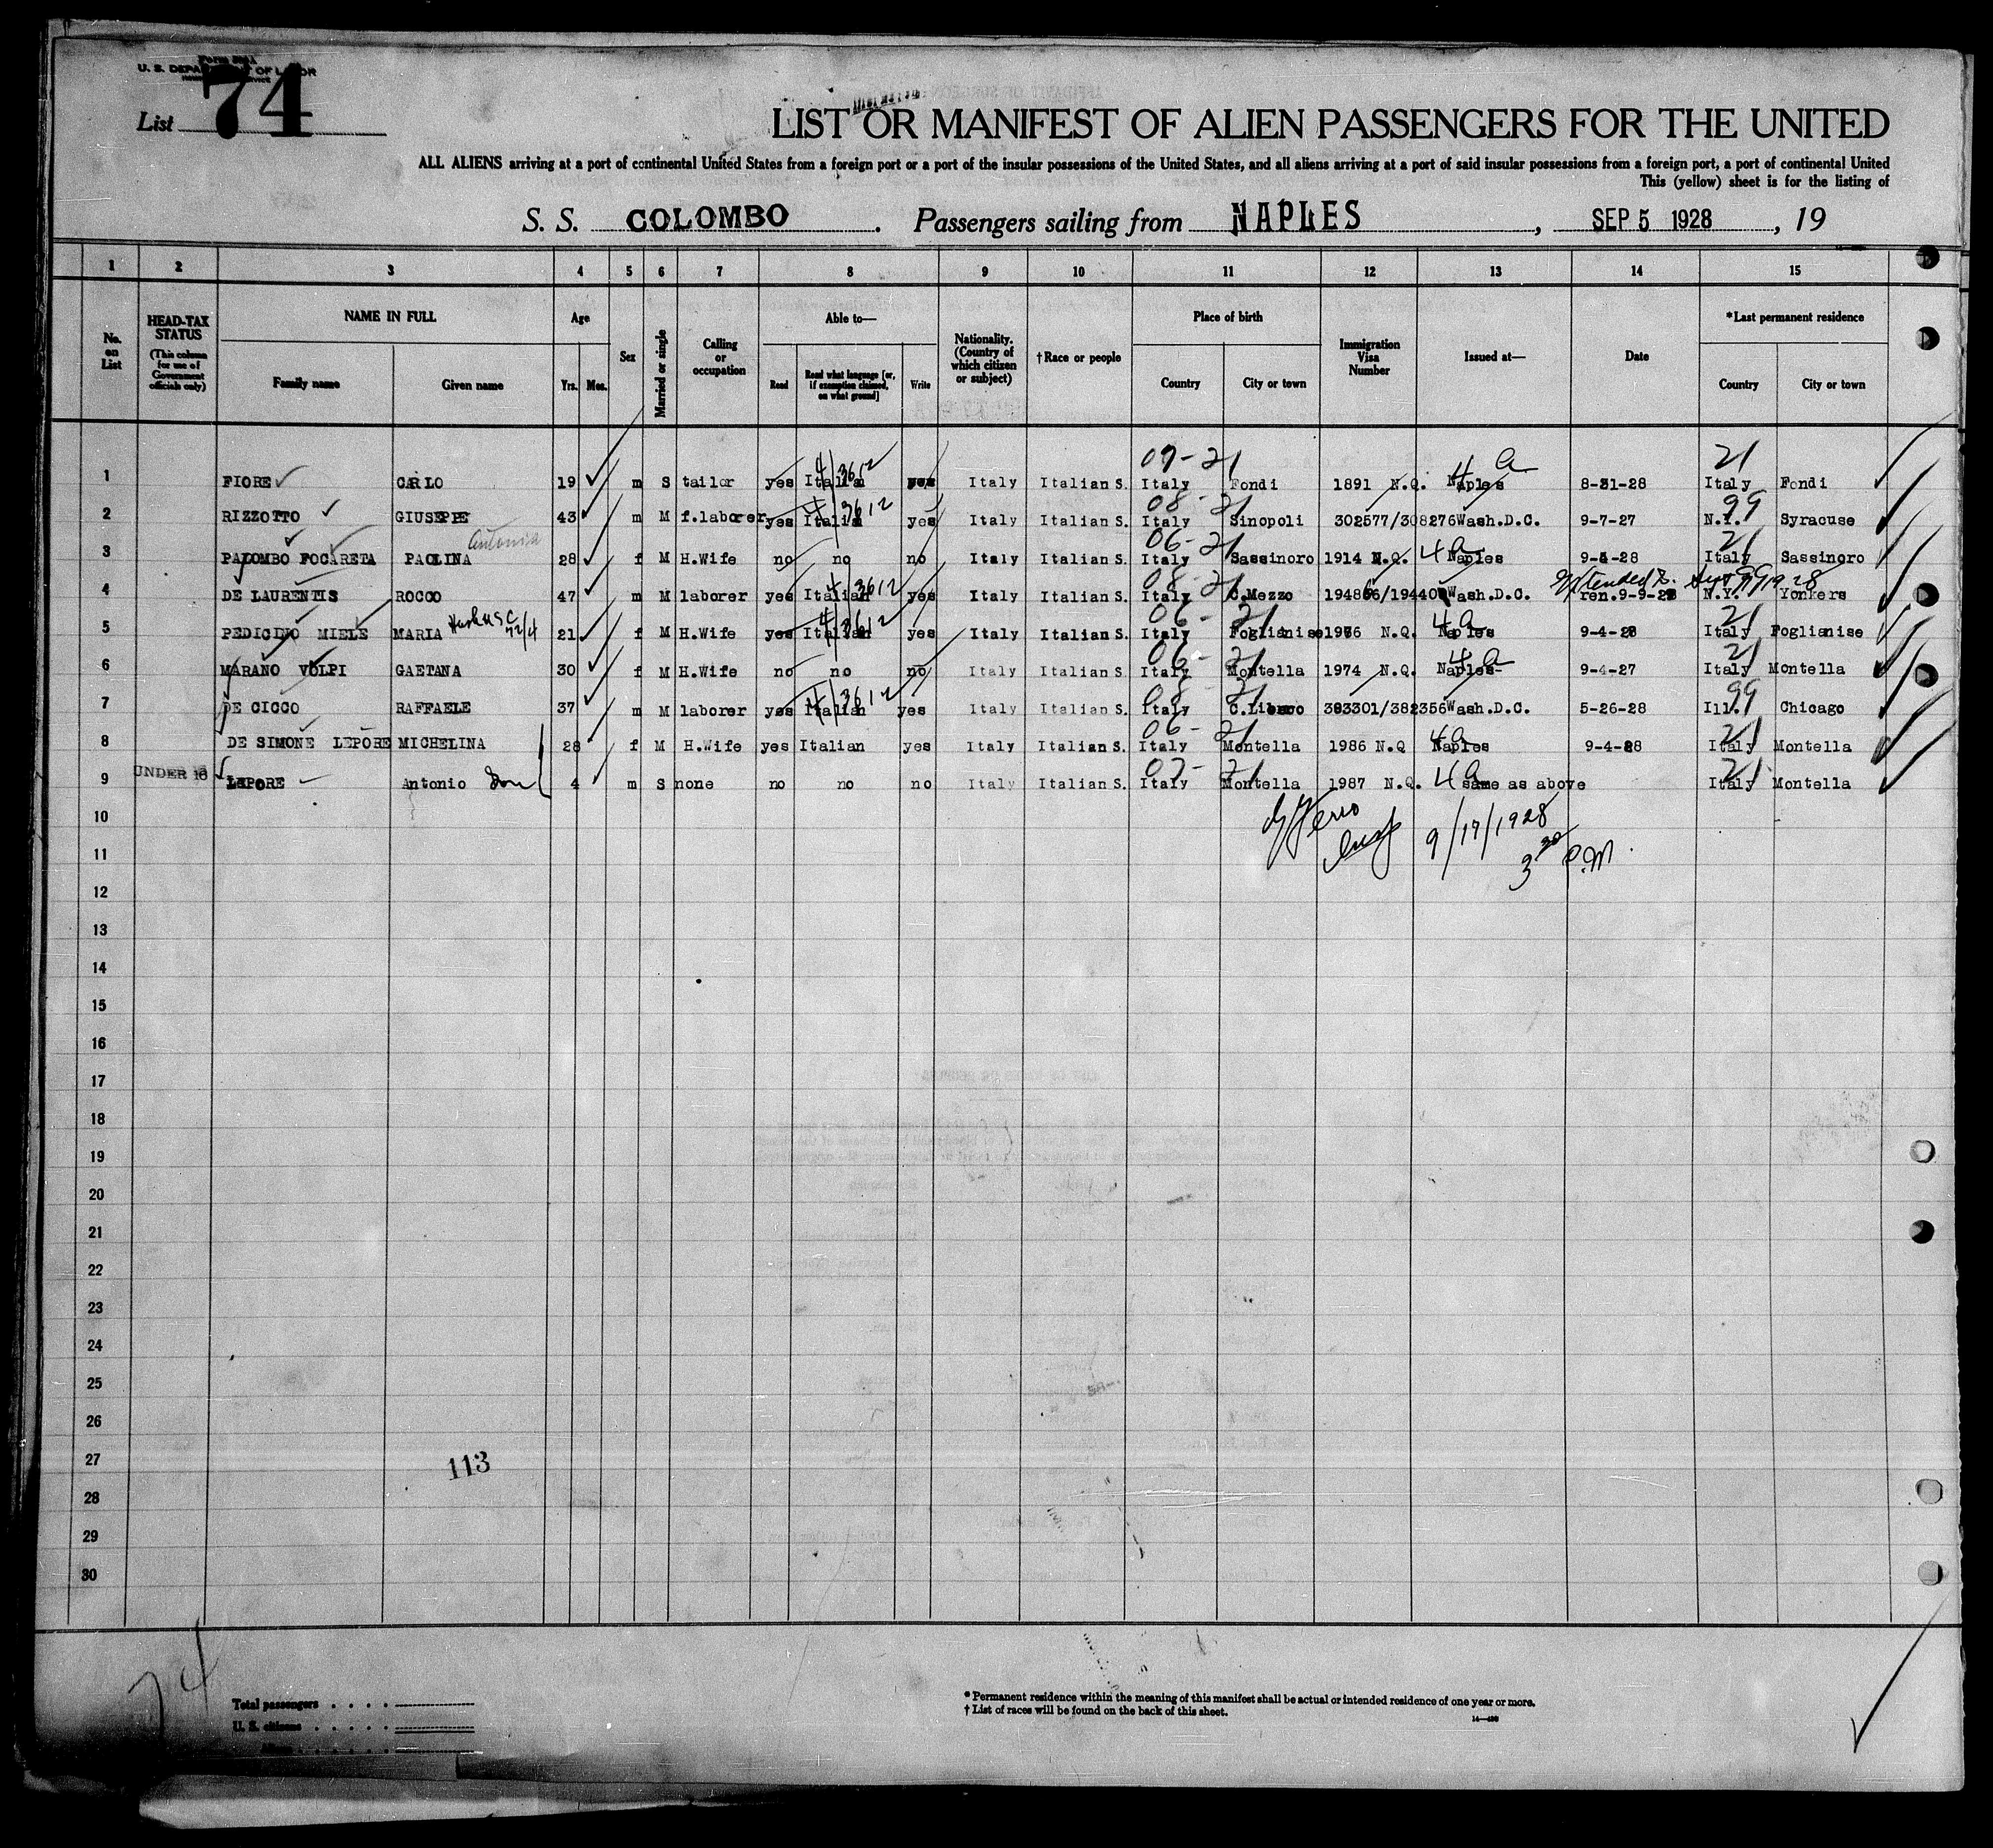 Form 500A
U. S. DEPARTMENT OF LABOR
List 74
LIST OR MANIFEST OF ALIEN PASSENGERS FOR THE UNITED
ALL ALIENS arriving at a port of continental United States from a foreign port or a port of the insular possessions of the United States, and all aliens arriving at a port of said insular possessions from a foreign port, a port of continental United
This (yellow) sheet is for the listing of
S. S. COLOMBO . Passengers sailing from NAPLES , SEP 5 1928 , 19
1 2 3 4 5 6 7 8 9 10 11 12 13 14 15
No. on List
HEAD-TAX STATUS (This column for use of Government officials only)
NAME IN FULL Family name Given name
Age Yrs. Mos.
Sex
Married or single
Calling or occupation
Able to— Read Read what language [or, if exemption claimed, on what ground] Write
Nationality. (Country of which citizen or subject)
†Race or people
Place of birth Country City or town
Immigration Visa Number
Issued at—
Date
*Last permanent residence Country City or town
07-21 4 a 21
1 FIORE CARLO 19 m S tailor yes Italian 4/3612 yes Italy Italian S. Italy Fondi 1891 N.Q. Naples 8-31-28 Italy Fondi
08-21 99
2 RIZZOTTO GIUSEPPE 43 m M f.laborer yes Italian 4/3612 yes Italy Italian S. Italy Sinopoli 302577/308276 Wash.D.C. 9-7-27 N.Y. Syracuse
Antonia 06-21 4a 21
3 PALOMBO FOCARETA PAOLINA 28 f M H.Wife no no no Italy Italian S. Italy Sassinoro 1914 N.Q. Naples 9-4-28 Italy Sassinoro
08-21 Extended to 99
4 DE LAURENTIS ROCCO 47 m M laborer yes Italian 4/3612 yes Italy Italian S. Italy C.Mezzo 194866/194408 Wash.D.C. ren.9-9-28 N.Y. Yonkers
06-21 4a 21
5 PEDICINO MIELE MARIA 21 f M H.Wife yes Italian 4/3612 yes Italy Italian S. Italy Foglianise 1976 N.Q. Naples 9-4-28 Italy Foglianise
06-21 4a 21
6 MARANO VOLPI GAETANA 30 f M H.Wife no no no Italy Italian S. Italy Montella 1974 N.Q. Naples 9-4-27 Italy Montella
08-21 99
7 DE CICCO RAFFAELE 37 m M laborer yes Italian 4/3612 yes Italy Italian S. Italy 383301/382356 Wash.D.C. 5-26-28 Ill. Chicago
06-21 4a 21
8 DE SIMONE LEPORE MICHELINA 28 f M H.Wife yes Italian yes Italy Italian S. Italy Montella 1986 N.Q Naples 9-4-28 Italy Montella
07-21 4a 21
9 UNDER 16 LEPORE Antonio Son 4 m S none no no no Italy Italian S. Italy Montella 1987 N.Q. same as above Italy Montella
10
9/19/1928
11
3 30 P.M.
12
13
14
15
16
17
18
19
20
21
22
23
24
25
26
27
113
28
29
30
74
Total passengers
U. S. citizens
Aliens
* Permanent residence within the meaning of this manifest shall be actual or intended residence of one year or more.
† List of races will be found on the back of this sheet.